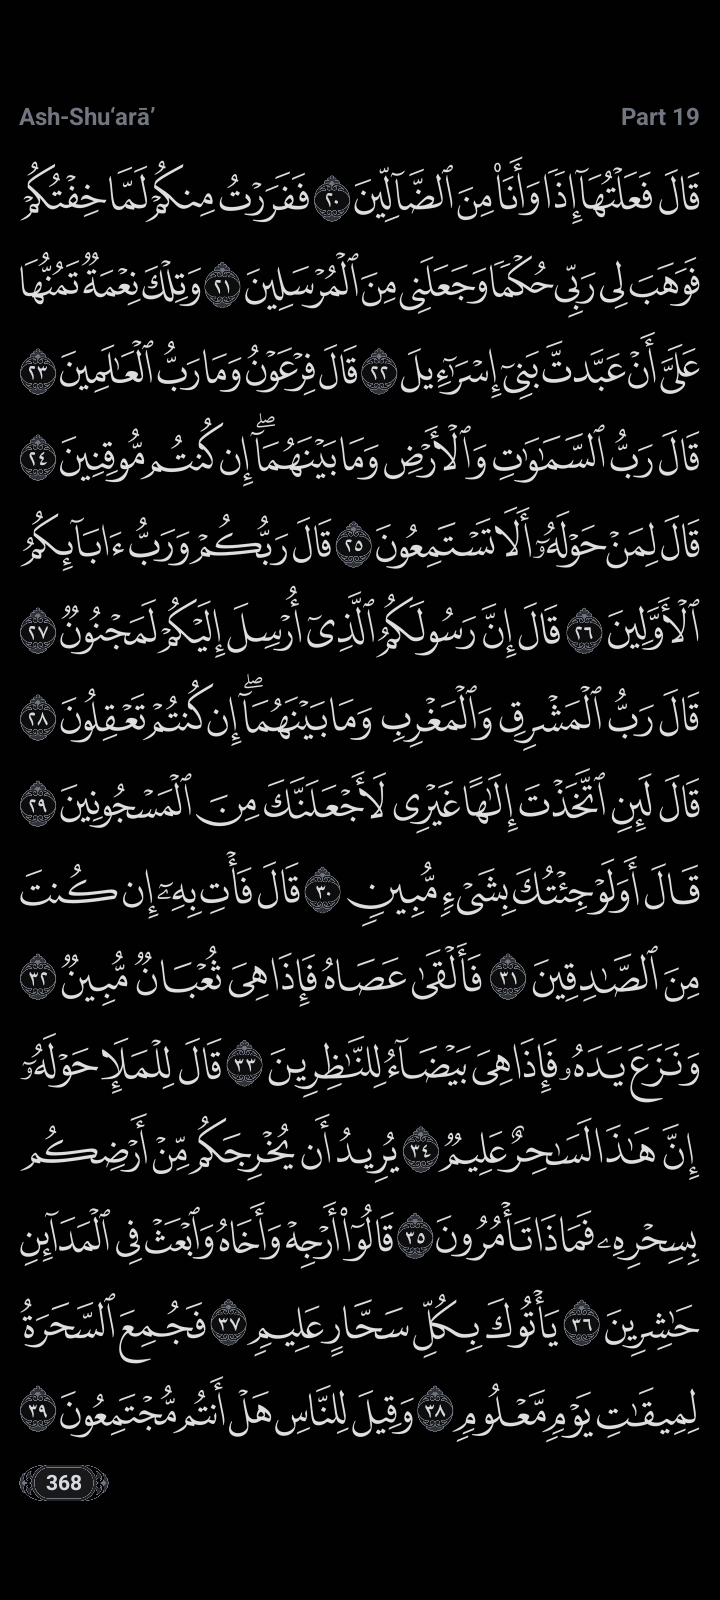 Ash-Shu‘arā’ Part 19
قَالَ فَعَلْتُهَآ إِذًا وَأَنَا۠ مِنَ ٱلضَّآلِّينَ ٢٠ فَفَرَرْتُ مِنكُمْ لَمَّا خِفْتُكُمْ
فَوَهَبَ لِى رَبِّى حُكْمًا وَجَعَلَنِى مِنَ ٱلْمُرْسَلِينَ ٢١ وَتِلْكَ نِعْمَةٌ تَمُنُّهَا
عَلَىَّ أَنْ عَبَّدتَّ بَنِىٓ إِسْرَٰٓءِيلَ ٢٢ قَالَ فِرْعَوْنُ وَمَا رَبُّ ٱلْعَـٰلَمِينَ ٢٣
قَالَ رَبُّ ٱلسَّمَـٰوَٰتِ وَٱلْأَرْضِ وَمَا بَيْنَهُمَآ ۖ إِن كُنتُم مُّوقِنِينَ ٢٤
قَالَ لِمَنْ حَوْلَهُۥٓ أَلَا تَسْتَمِعُونَ ٢٥ قَالَ رَبُّكُمْ وَرَبُّ ءَابَآئِكُمُ
ٱلْأَوَّلِينَ ٢٦ قَالَ إِنَّ رَسُولَكُمُ ٱلَّذِىٓ أُرْسِلَ إِلَيْكُمْ لَمَجْنُونٌ ٢٧
قَالَ رَبُّ ٱلْمَشْرِقِ وَٱلْمَغْرِبِ وَمَا بَيْنَهُمَآ ۖ إِن كُنتُمْ تَعْقِلُونَ ٢٨
قَالَ لَئِنِ ٱتَّخَذْتَ إِلَـٰهًا غَيْرِى لَأَجْعَلَنَّكَ مِنَ ٱلْمَسْجُونِينَ ٢٩
قَالَ أَوَلَوْ جِئْتُكَ بِشَىْءٍ مُّبِينٍ ٣٠ قَالَ فَأْتِ بِهِۦٓ إِن كُنتَ
مِنَ ٱلصَّـٰدِقِينَ ٣١ فَأَلْقَىٰ عَصَاهُ فَإِذَا هِىَ ثُعْبَانٌ مُّبِينٌ ٣٢
وَنَزَعَ يَدَهُۥ فَإِذَا هِىَ بَيْضَآءُ لِلنَّـٰظِرِينَ ٣٣ قَالَ لِلْمَلَإِ حَوْلَهُۥٓ
إِنَّ هَـٰذَا لَسَـٰحِرٌ عَلِيمٌ ٣٤ يُرِيدُ أَن يُخْرِجَكُم مِّنْ أَرْضِكُم
بِسِحْرِهِۦ فَمَاذَا تَأْمُرُونَ ٣٥ قَالُوٓا۟ أَرْجِهْ وَأَخَاهُ وَٱبْعَثْ فِى ٱلْمَدَآئِنِ
حَـٰشِرِينَ ٣٦ يَأْتُوكَ بِكُلِّ سَحَّارٍ عَلِيمٍ ٣٧ فَجُمِعَ ٱلسَّحَرَةُ
لِمِيقَـٰتِ يَوْمٍ مَّعْلُومٍ ٣٨ وَقِيلَ لِلنَّاسِ هَلْ أَنتُم مُّجْتَمِعُونَ ٣٩
368